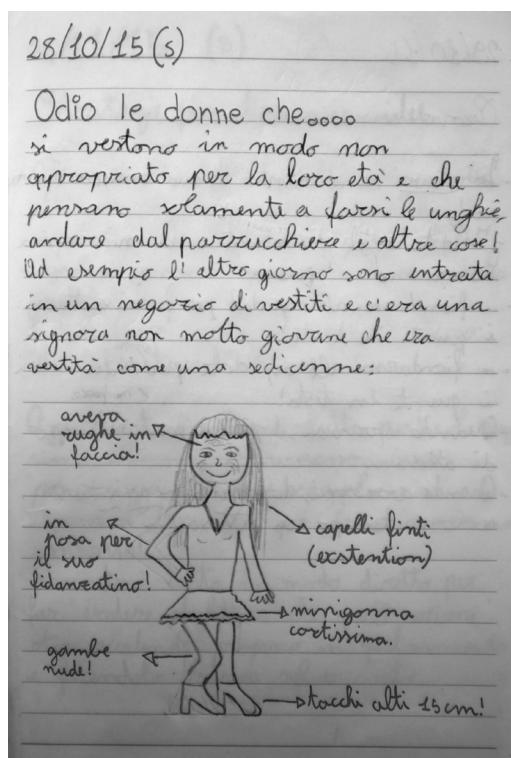 28/10/15 (s)
Odio le donne che....
si vestono in modo non
appropriato per la loro età e che
pensano solamente a farsi le unghie,
andare dal parrucchiere e altre cose!
Ad esempio l'altro giorno sono entrata
in un negozio di vestiti e c'era una
signora non molto giovane che era
vestità come una sedicenne:
aveva
rughe in
faccia!
in
posa per
il suo
fidanzatino!
capelli finti
(exstention)
minigonna
cortissima.
gambe
nude!
tacchi alti 15 cm!